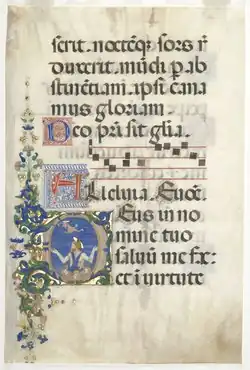 scrit. noctēqȝ sors n̄
duxerit. mūdi p ab
stinentiam. ipsi cana
mus gloriam
Deo pr̄i sit glīa.
Alleluia. Euoē.
Deus in no
mine tuo
saluū me fac:
et i uirtute